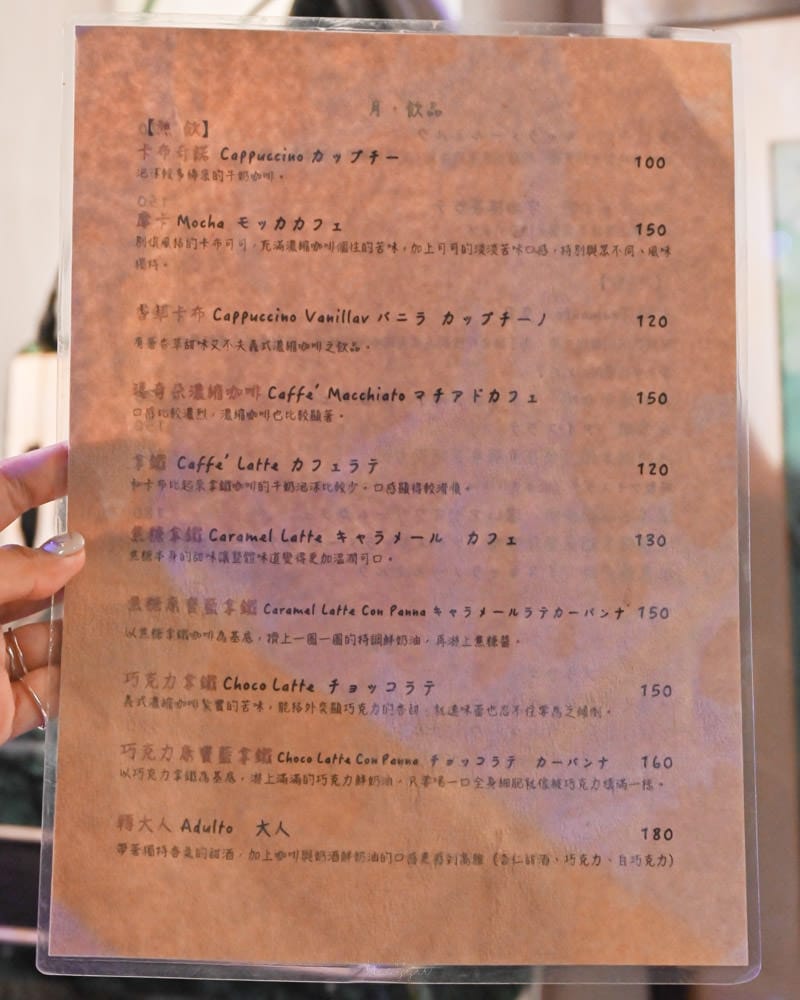 月·飲品
【熱 飲】
卡布奇諾 Cappuccino カップチー 100
泡沫較多綿柔的牛奶咖啡。
摩卡 Mocha モッカカフェ 150
別慎風格的卡布可可，充滿濃縮咖啡個性的苦味，加上可可的淡淡苦味口感，特別與眾不同、風味
獨特。
香草卡布 Cappuccino Vanillav バニラ カップチーノ 120
有著香草甜味又不失義式濃縮咖啡之飲品。
瑪奇朵濃縮咖啡 Caffe' Macchiato マチアドカフェ 150
口感比較濃烈，濃縮咖啡也比較顯著。
拿鐵 Caffe' Latte カフェラテ 120
和卡布比起來拿鐵咖啡的牛奶泡沫比較少。口感顯得較滑順。
焦糖拿鐵 Caramel Latte キャラメール カフェ 130
焦糖本身的甜味讓整體味道變得更加溫潤可口。
焦糖康寶藍拿鐵 Caramel Latte Con Panna キャラメールラテカーパンナ 150
以焦糖拿鐵咖啡為基底，擠上一圈一圈的特調鮮奶油，再淋上焦糖醬。
巧克力拿鐵 Choco Latte チョッコラテ 150
義式濃縮咖啡紮實的苦味，能格外突顯巧克力的香甜，就連味蕾也忍不住要為之傾倒。
巧克力康寶藍拿鐵 Choco Latte Con Panna チョッコラテ カーパンナ 160
以巧克力拿鐵為基底，淋上滿滿的巧克力鮮奶油，只要喝一口全身細胞就像被巧克力填滿一樣。
轉大人 Adulto 大人 180
帶著獨特香氣的甜酒，加上咖啡與奶酒鮮奶油的口感更臻到高雅（杏仁甜酒、巧克力、白巧克力）